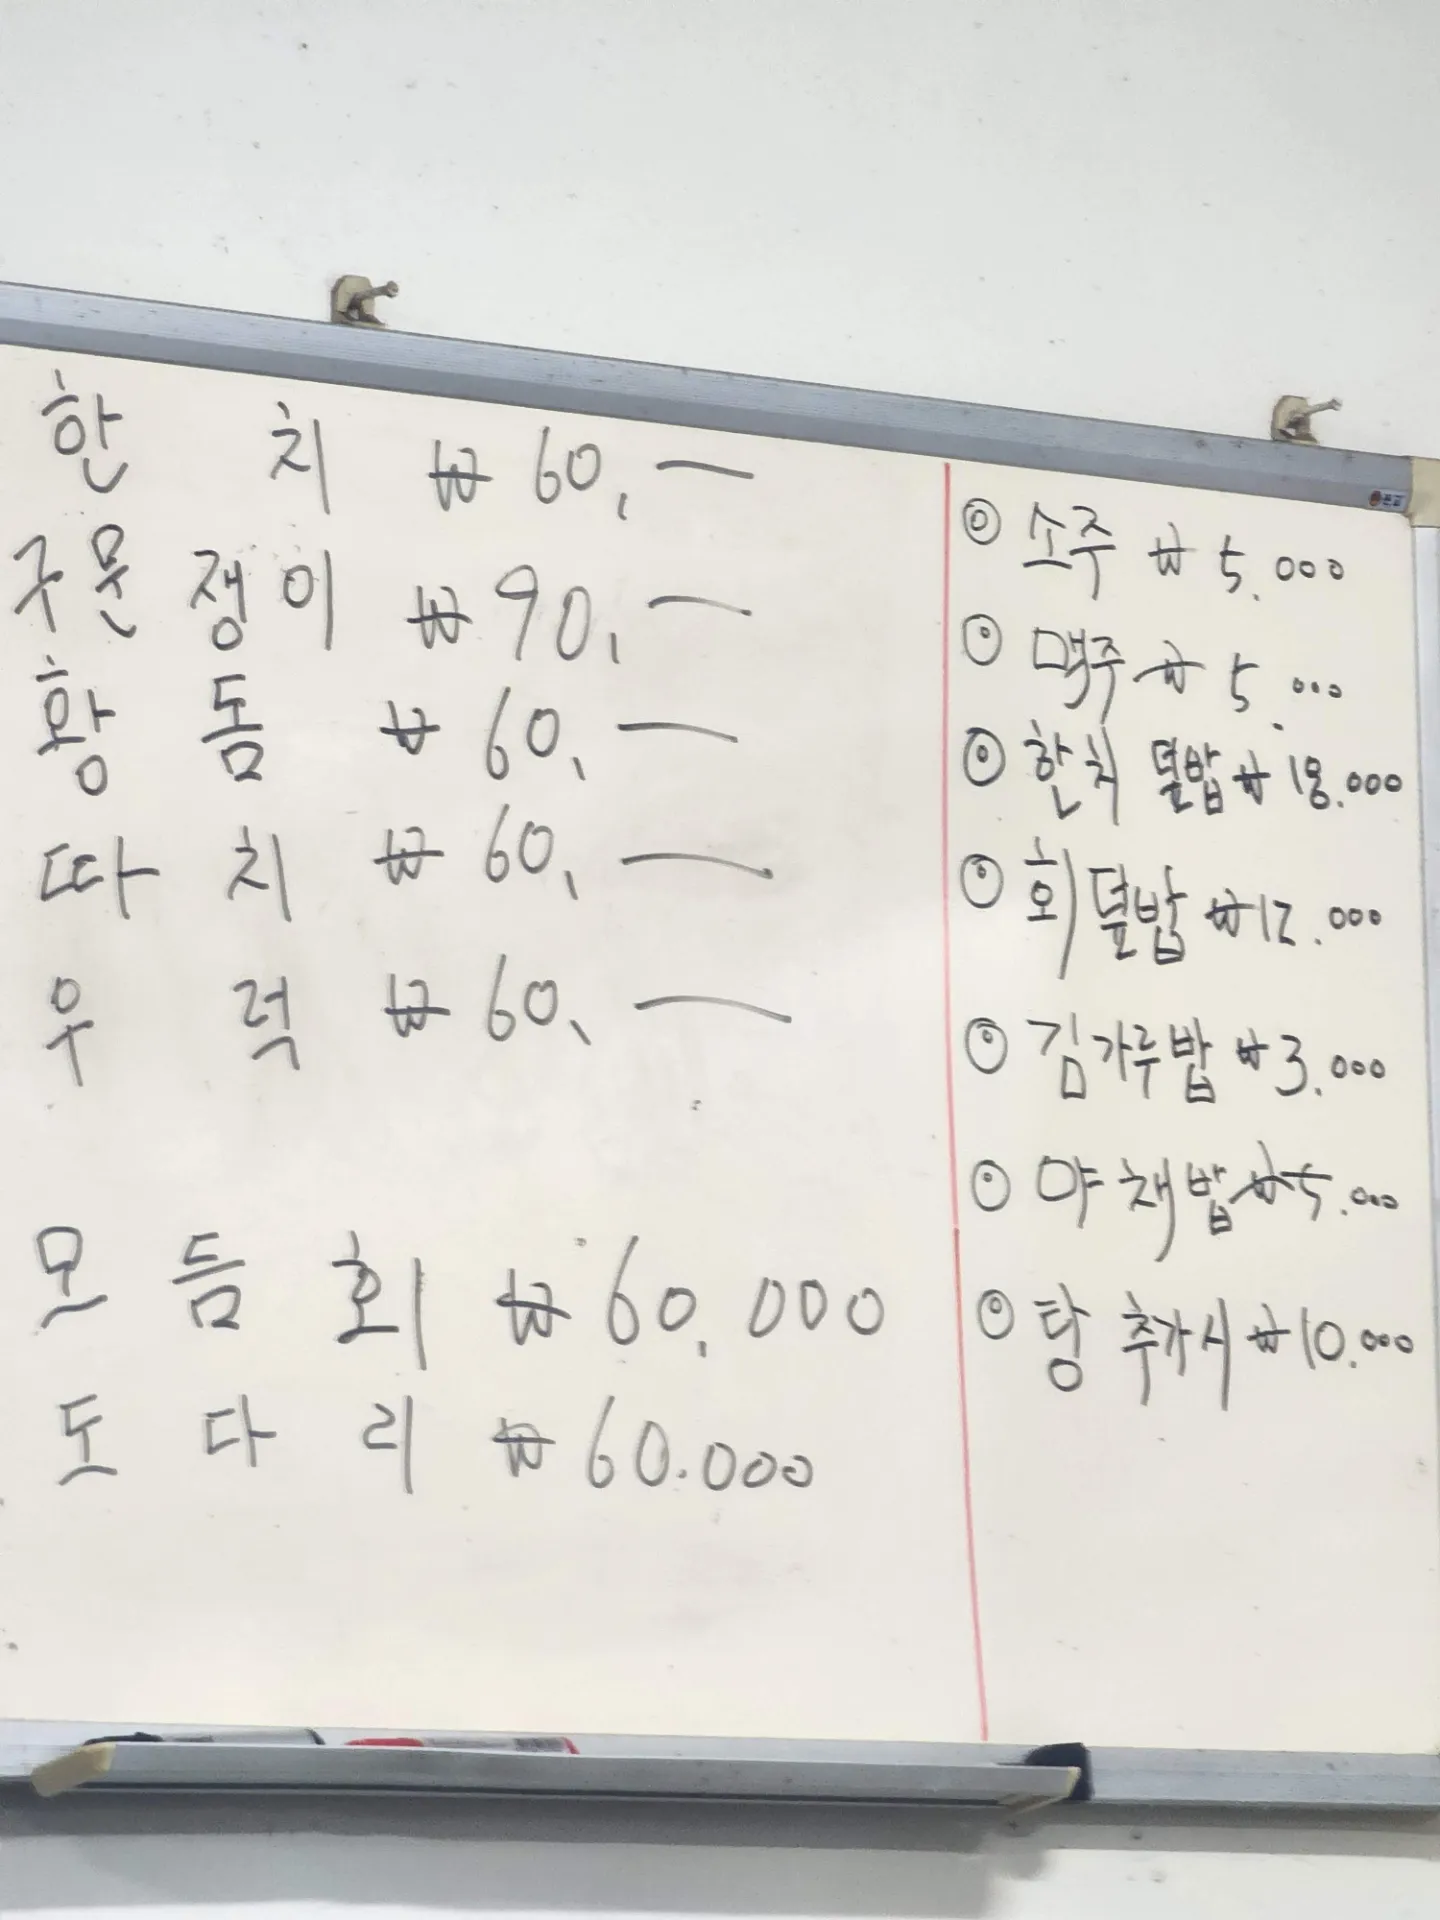 한 치 ₩ 60,—
구문쟁이 ₩ 90,—
황 돔 ₩ 60,—
따 치 ₩ 60,—
우 럭 ₩ 60,—
모 듬 회 ₩ 60,000
도 다 리 ₩ 60.000
◎ 소주 ₩ 5.000
◎ 맥주 ₩ 5.000
◎ 한치 덮밥 ₩ 18.000
◎ 회덮밥 ₩ 12.000
◎ 김가루밥 ₩ 3.000
◎ 야채밥 ₩ 5.000
◎ 탕 추가시 ₩ 10.000